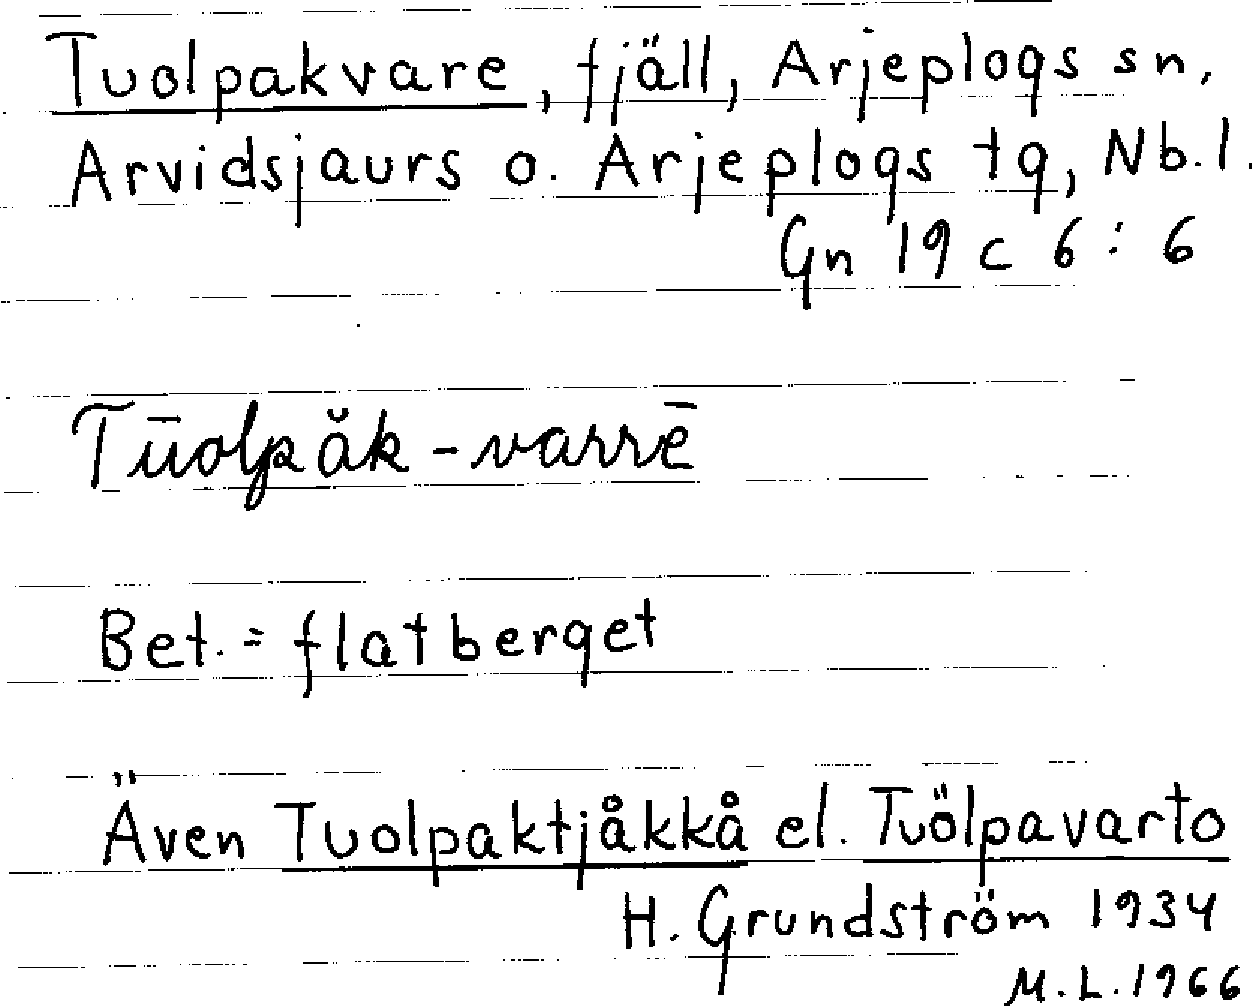 Tuolpakvare, fjäll, Arjeplogs sn,
Arvidsjaurs o. Arjeplogs tg, Nb.l.
Gn 19 c 6:6
Tūolpăk-varrē
Bet. = flatberget
Även Tuolpaktjåkkå el. Tuölpavarto
H. Grundström 1934
M.L. 1966